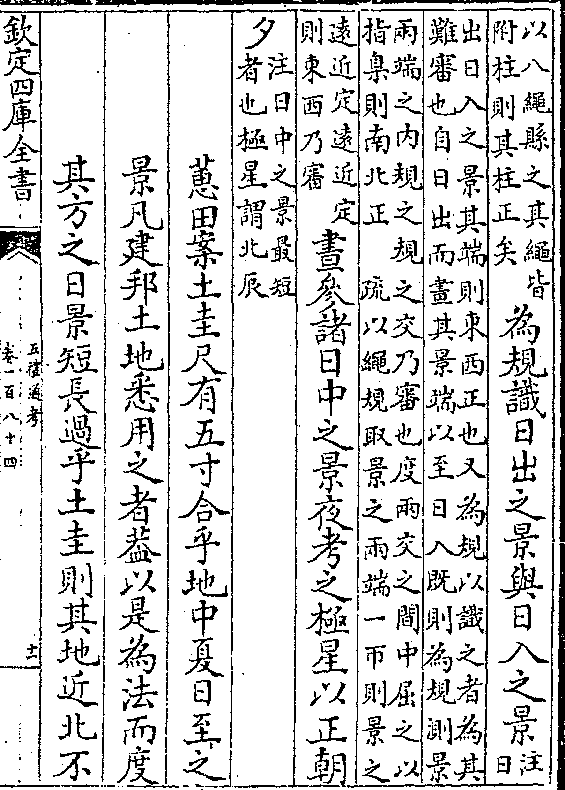 以八繩縣之其繩皆
附柱則其柱正矣
為規識日出之景與日入之景
注
日
出日入之景其端則東西正也又為規以識之者為其
難審也自日出而畫其景端以至日入既則為規測景
兩端之内規之規之交乃審也度兩交之間中屈之以
指臬則南北正　疏以繩規取景之兩端一帀則景之
遠近定遠近定
則東西乃審
晝參諸日中之景夜考之極星以正朝
夕
注日中之景最短
者也極星謂北辰
蕙田案土圭尺有五寸合乎地中夏日至之
景凡建邦土地悉用之者葢以是為法而度
其方之日景短長過乎土圭則其地近北不
欽定四庫全書
五禮通考
卷一百八十四
十一